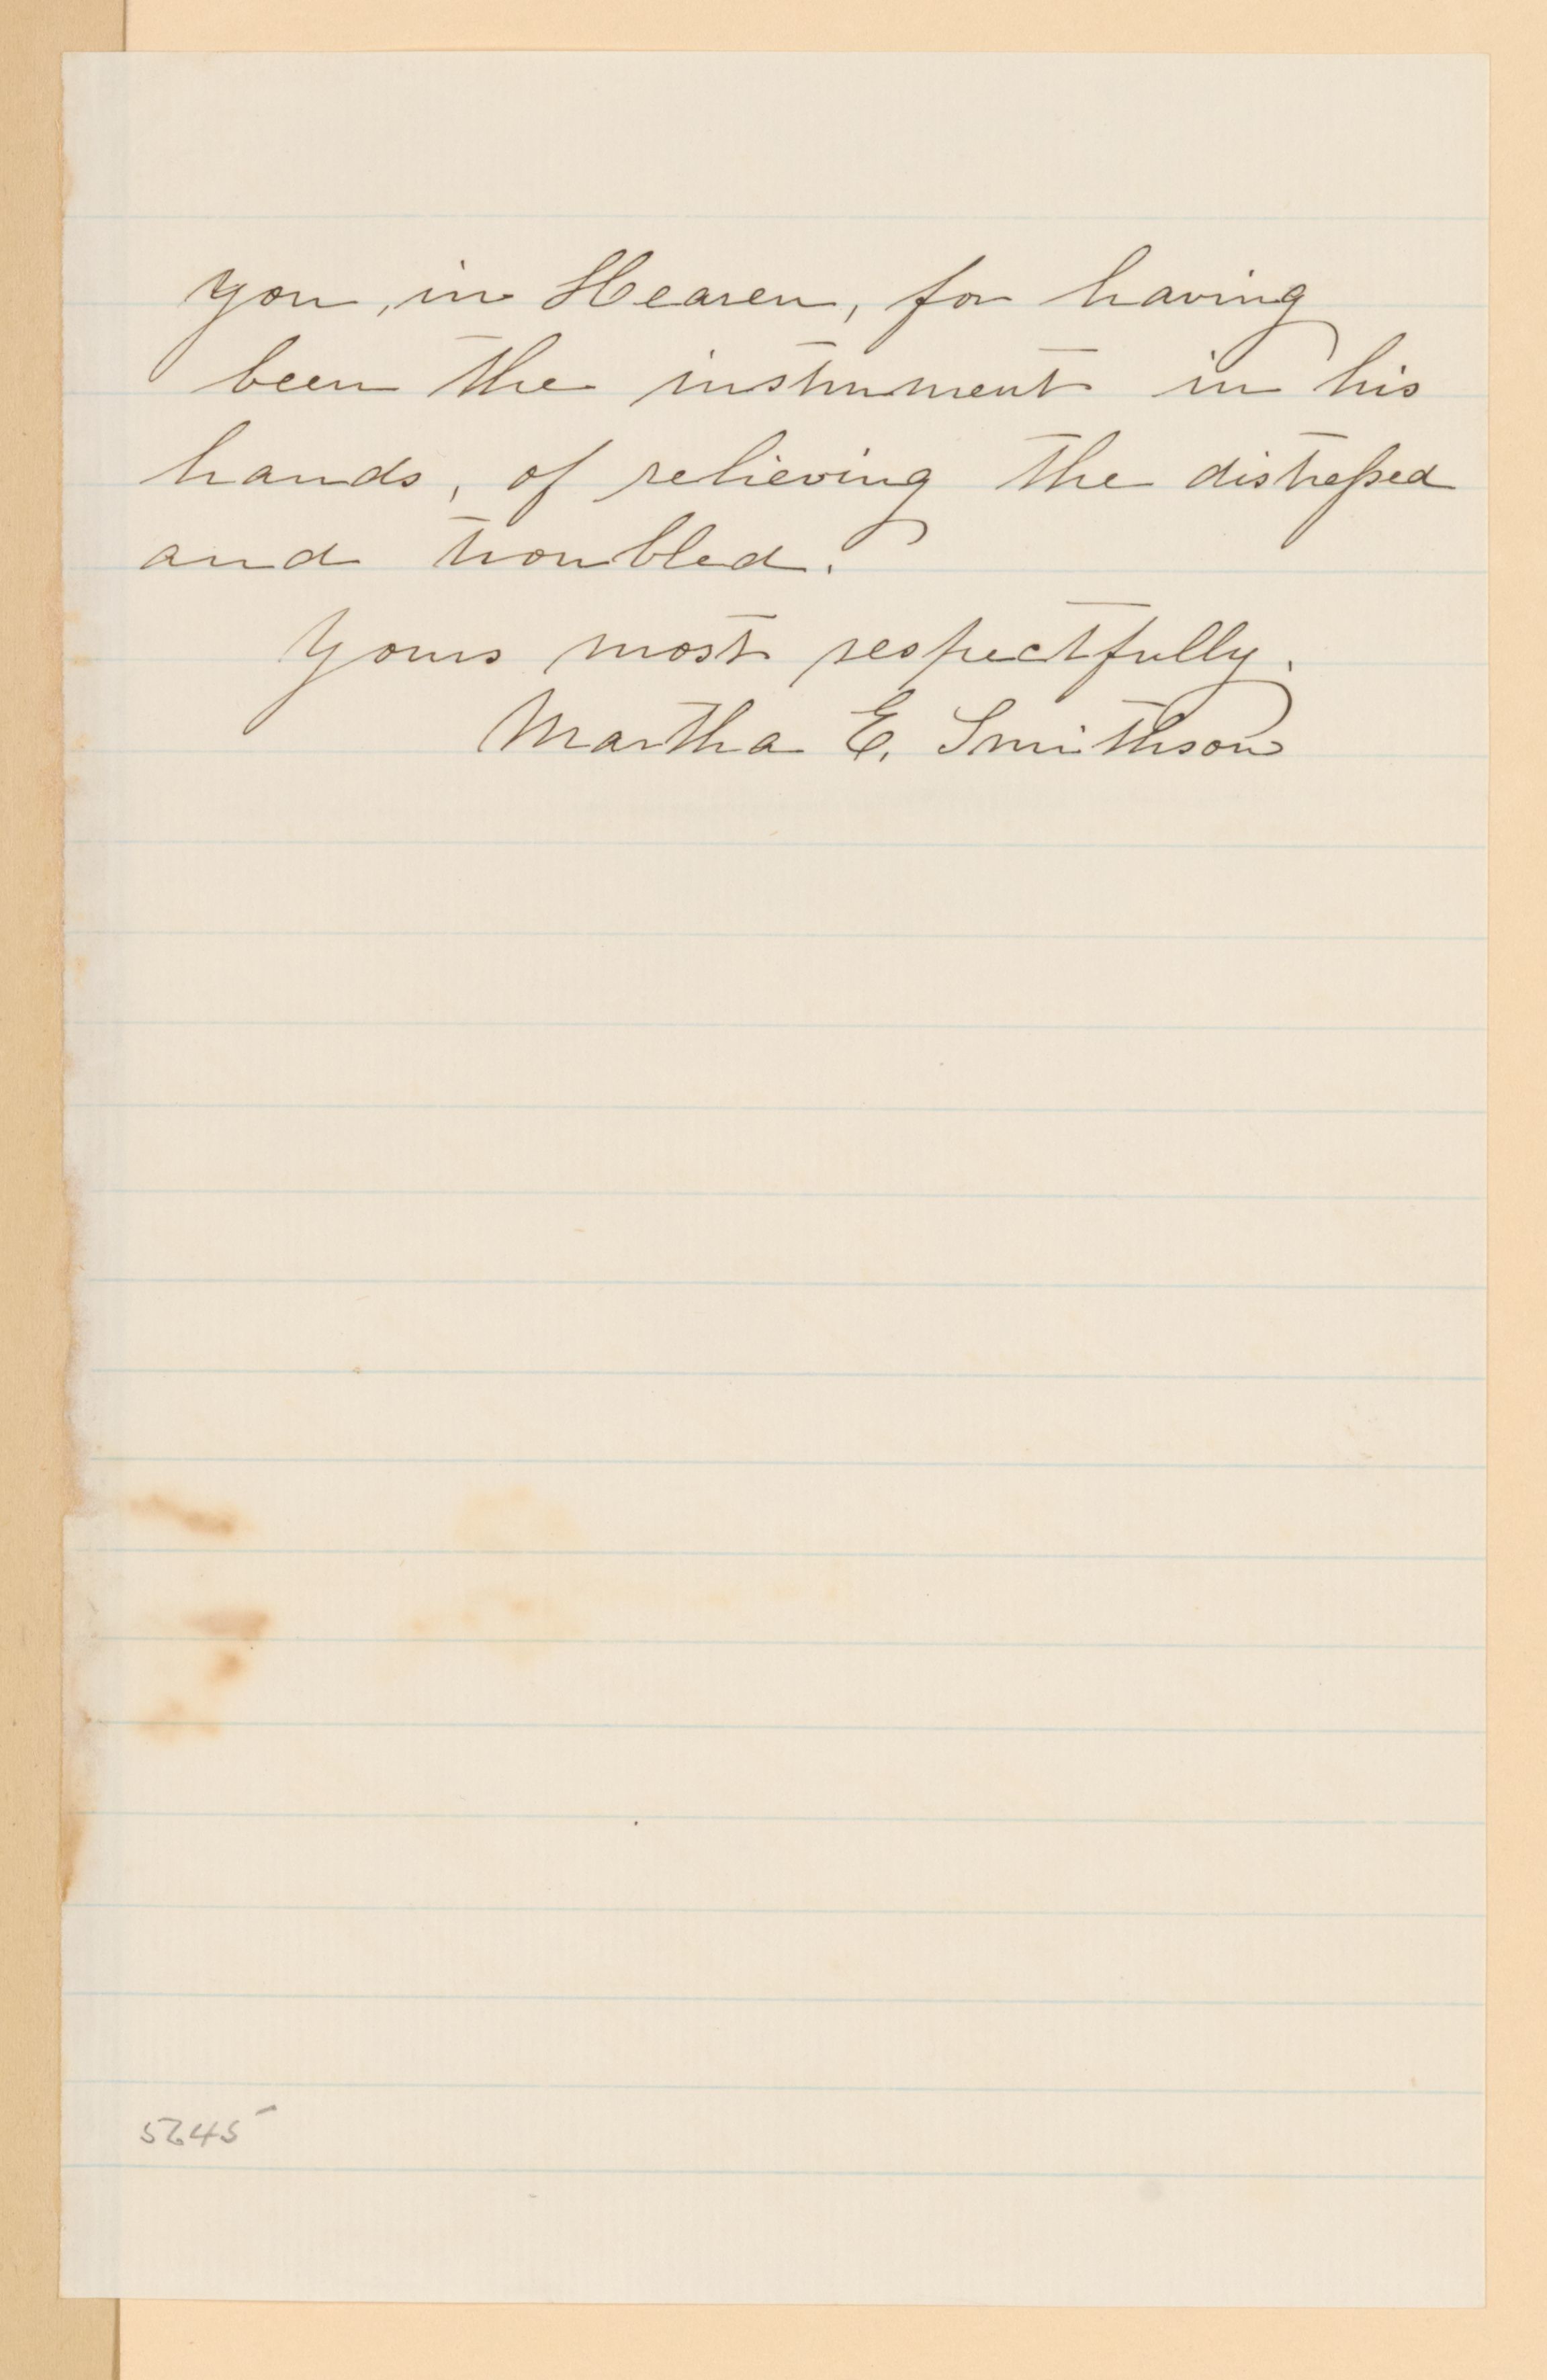 you, in Heaven, for having
been the instrument in his
hands, of relieving the distressed
and troubled.
Yours most respectfully.
Martha E. Smithson
5645